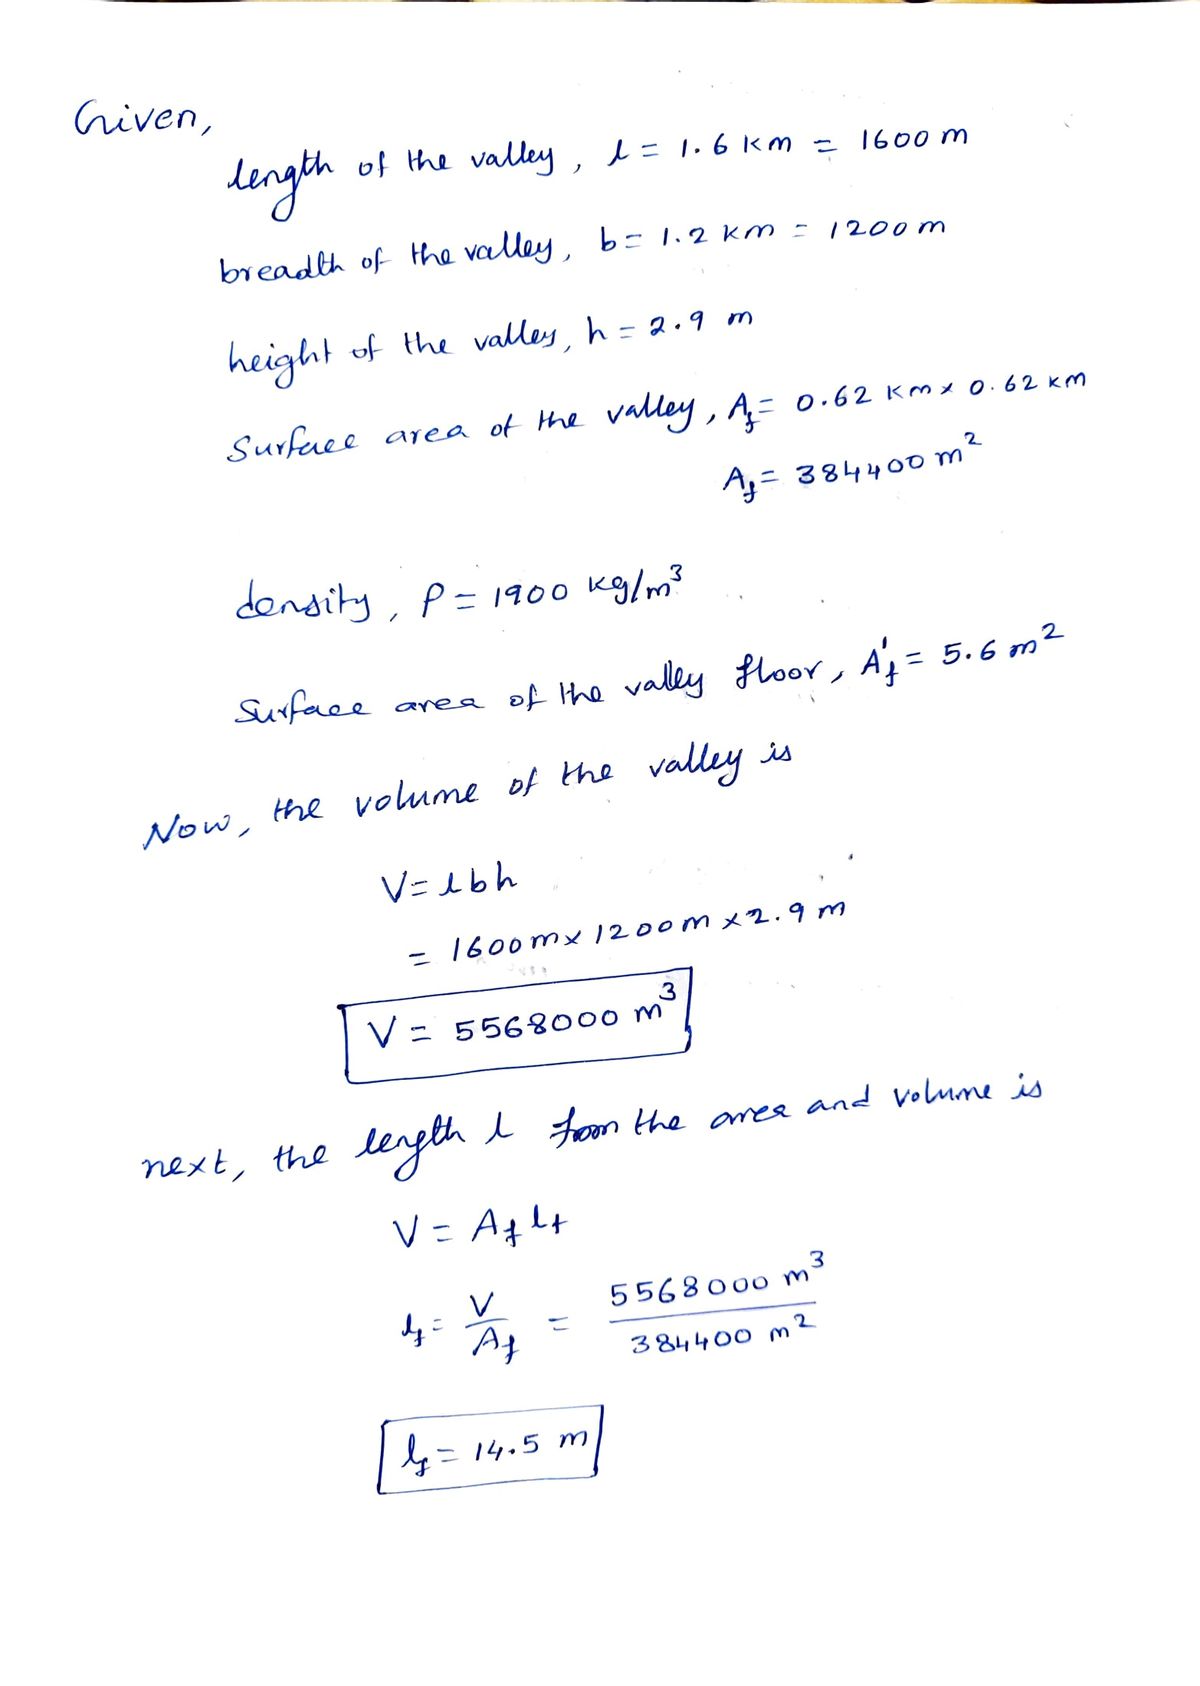 Given,
length of the valley, l = 1.6 km = 1600 m
breadth of the valley, b = 1.2 km = 1200 m
height of the valley, h = 2.9 m
Surface area of the valley, A_f = 0.62 km x 0.62 km
A_f = 384400 m²
density, ρ = 1900 kg/m³
Surface area of the valley floor, A'_f = 5.6 m²
Now, the volume of the valley is
V = lbh
= 1600 m x 1200 m x 2.9 m
V = 5568000 m³
next, the length l from the area and volume is
V = A_f l_f
l_f = V/A_f = 5568000 m³/384400 m²
l_f = 14.5 m